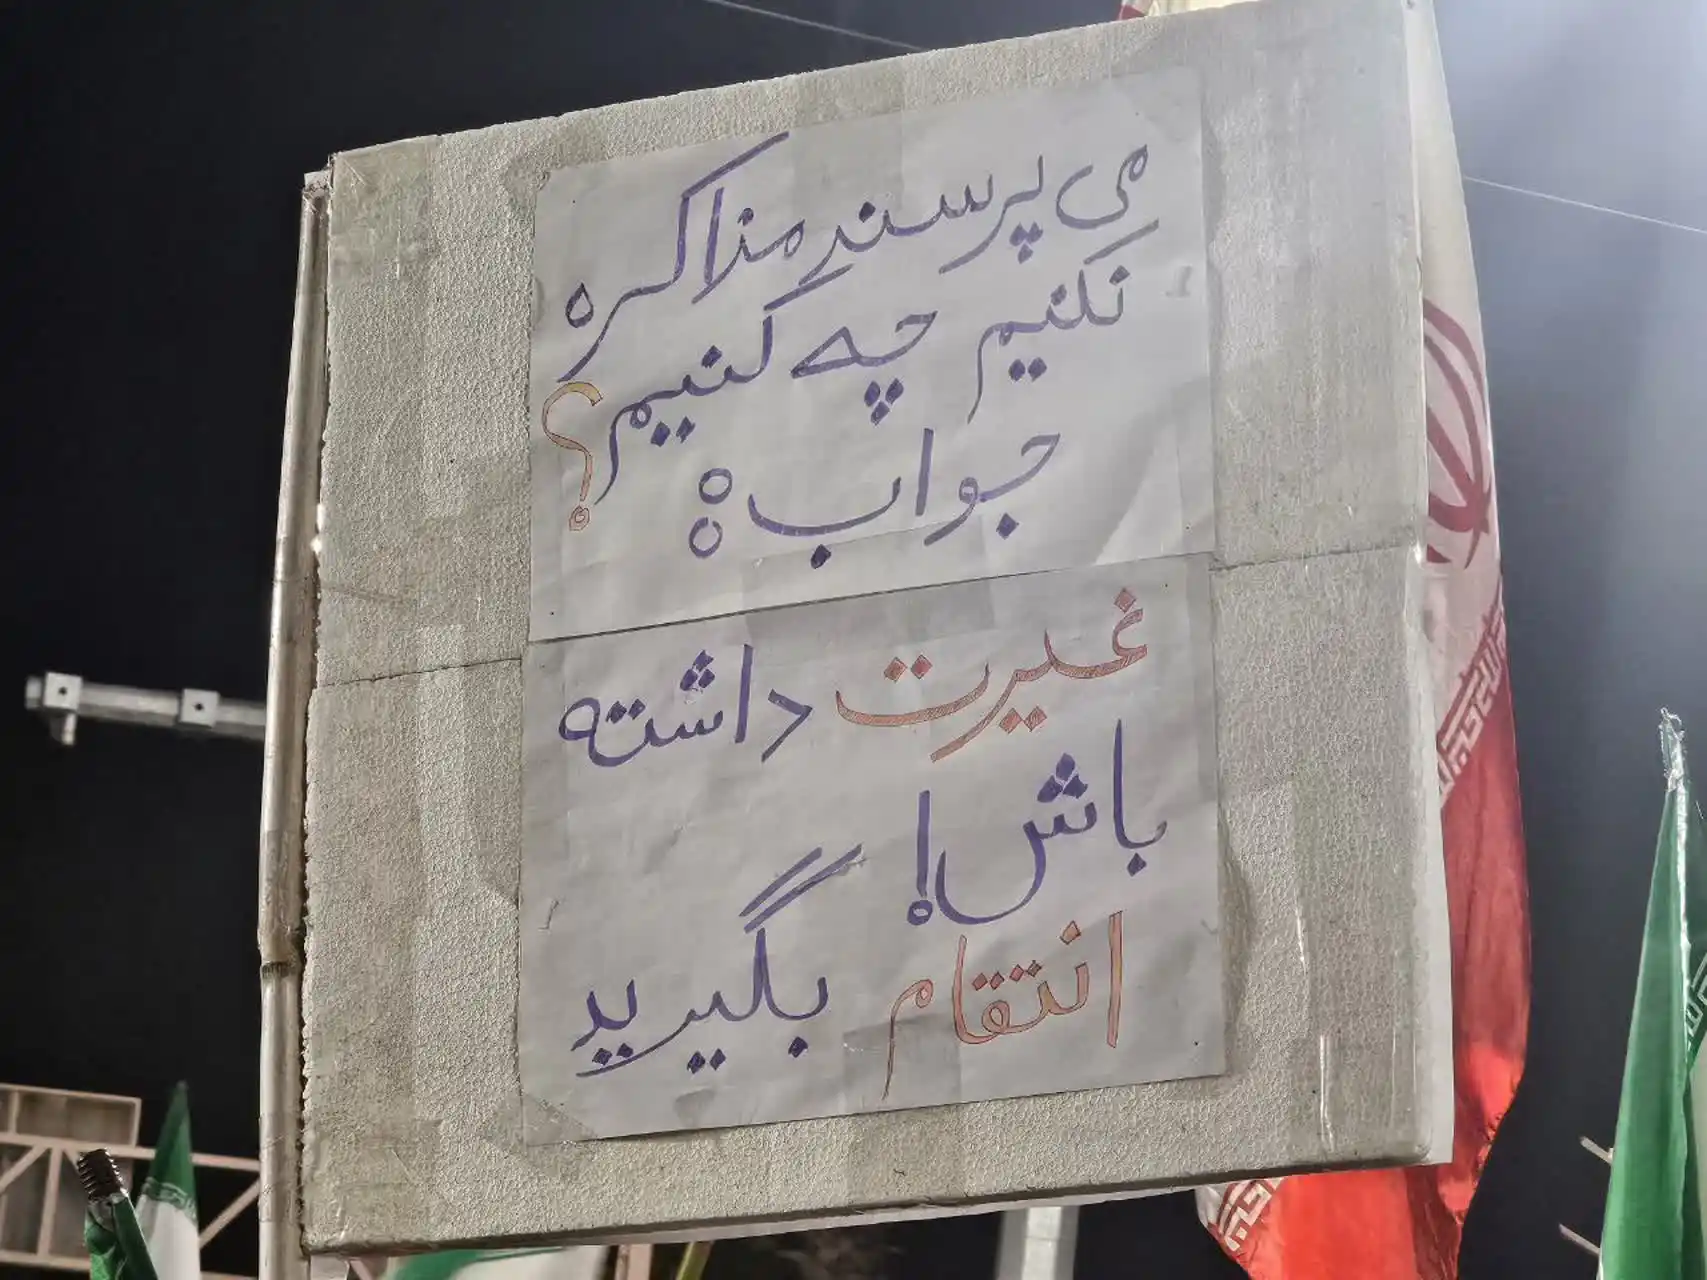 می پرسند مذاکره
نکنیم چه کنیم؟
جواب:
غیرت داشته
باش!
انتقام بگیرید